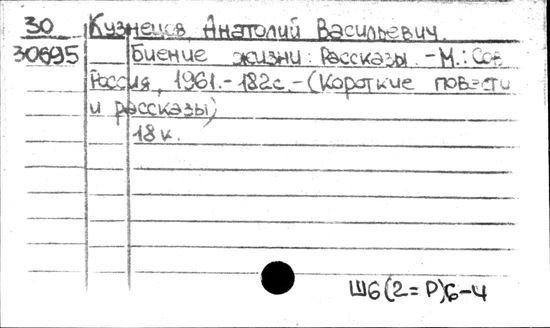 30 Кузнецов, Анатолий Васильевич.
30695 Биение жизни: Рассказы. -М.: Сов.
Россия, 1961.-182с.-(Короткие повести
и рассказы)
18к.
Ш6(2=Р)6-4